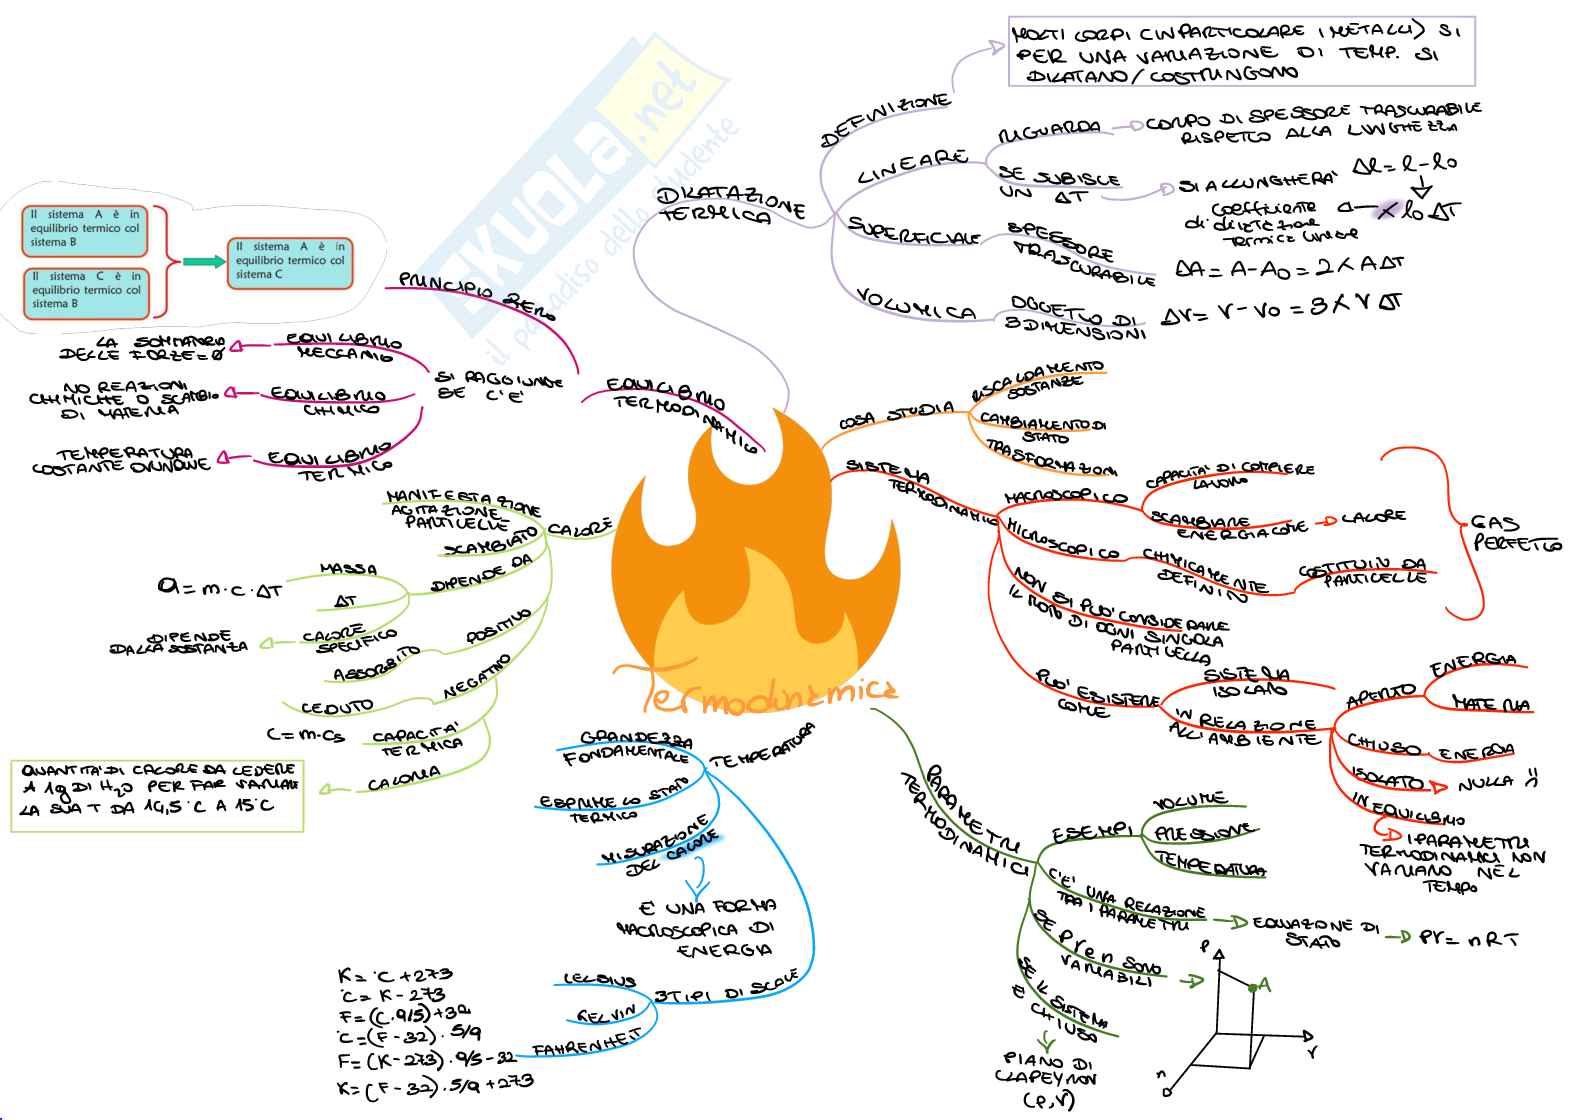 MOLTI CORPI (IN PARTICOLARE I METALLI) SI
PER UNA VARIAZIONE DI TEMP. SI
DILATANO/COSTRINGONO
DEFINIZIONE
DILATAZIONE
TERMICA
LINEARE
RIGUARDA
CORPO DI SPESSORE TRASCURABILE
RISPETTO ALLA LUNGHEZZA
SE SUBISCE
UN ΔT
SI ALLUNGHERA'
Δl = l - l0
COEFFICIENTE
di dilatazione
termica lineare
λ l0 ΔT
SUPERFICIALE
SPESSORE
TRASCURABILE
ΔA = A - A0 = 2λAΔT
VOLUMICA
OGGETTO DI
3 DIMENSIONI
ΔV = V - V0 = 3λVΔT
SKUOLA.net
il paradiso dello studente
Il sistema A è in
equilibrio termico col
sistema B
Il sistema C è in
equilibrio termico col
sistema B
Il sistema A è in
equilibrio termico col
sistema C
PRINCIPIO ZERO
EQUILIBRIO
TERMODINAMICO
SI RAGGIUNGE
SE C'E'
EQUILIBRIO
MECCANICO
LA SOMMATORIA
DELLE FORZE = 0
EQUILIBRIO
CHIMICO
NO REAZIONI
CHIMICHE O SCAMBIO
DI MATERIA
EQUILIBRIO
TERMICO
TEMPERATURA
COSTANTE OVUNQUE
COSA STUDIA
RISCALDAMENTO
SOSTANZE
CAMBIAMENTO DI
STATO
TRASFORMAZIONI
SISTEMA
TERMODINAMICO
MACROSCOPICO
CAPACITA' DI COMPIERE
LAVORO
SCAMBIARE
ENERGIA COME
CALORE
MICROSCOPICO
CHIMICAMENTE
DEFINITI
COSTITUITI DA
PARTICELLE
GAS
PERFETTO
NON SI PUO' CONSIDERARE
IL MOTO DI OGNI SINGOLA
PARTICELLA
PUO' ESISTERE
COME
SISTEMA
ISOLATO
IN RELAZIONE
ALL'AMBIENTE
APERTO
ENERGIA
MATERIA
CHIUSO
ENERGIA
ISOLATO
NULLA
IN EQUILIBRIO
I PARAMETRI
TERMODINAMICI NON
VARIANO NEL
TEMPO
CALORE
MANIFESTAZIONE
AGITAZIONE
PARTICELLE
SCAMBIATO
DIPENDE DA
MASSA
ΔT
CALORE
SPECIFICO
Q = m·c·ΔT
DIPENDE
DALLA SOSTANZA
POSITIVO
ASSORBITO
NEGATIVO
CEDUTO
CAPACITA'
TERMICA
C = m·cs
CALORIA
QUANTITA' DI CALORE DA CEDERE
A 1g DI H2O PER FAR VARIARE
LA SUA T DA 14,5°C A 15°C
Termodinamica
TEMPERATURA
GRANDEZZA
FONDAMENTALE
ESPRIME LO STATO
TERMICO
MISURAZIONE
DEL CALORE
E' UNA FORMA
MACROSCOPICA DI
ENERGIA
3 TIPI DI SCALE
CELSIUS
KELVIN
FAHRENHEIT
K = °C + 273
°C = K - 273
F = (C·9/5) + 32
°C = (F - 32)·5/9
F = (K - 273)·9/5 - 32
K = (F - 32)·5/9 + 273
PARAMETRI
TERMODINAMICI
ESEMPI
VOLUME
PRESSIONE
TEMPERATURA
C'E' UNA RELAZIONE
TRA I PARAMETRI
EQUAZIONE DI
STATO
PV = nRT
SE P V e n SONO
VARIABILI
P
A
V
n
SE IL SISTEMA
E' CHIUSO
PIANO DI
CLAPEYRON
(P,V)